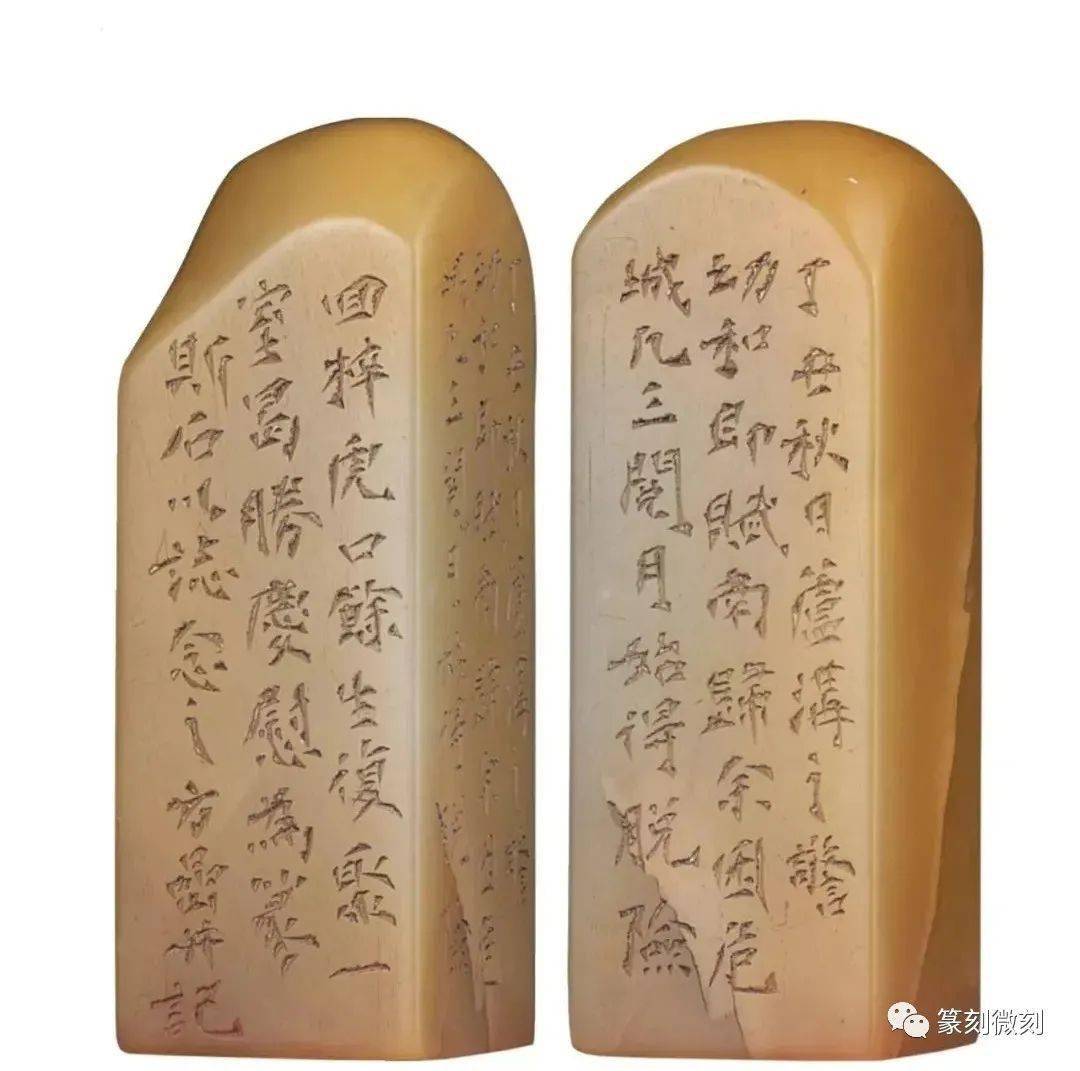 丁丑秋日蘆溝之警
幼和即賦南歸余困危
城凡三閱月始得脫險
回梓虎口餘生復聚一
室曷勝慶慰為篆
斯石以誌念之方嵒并記
篆刻微刻